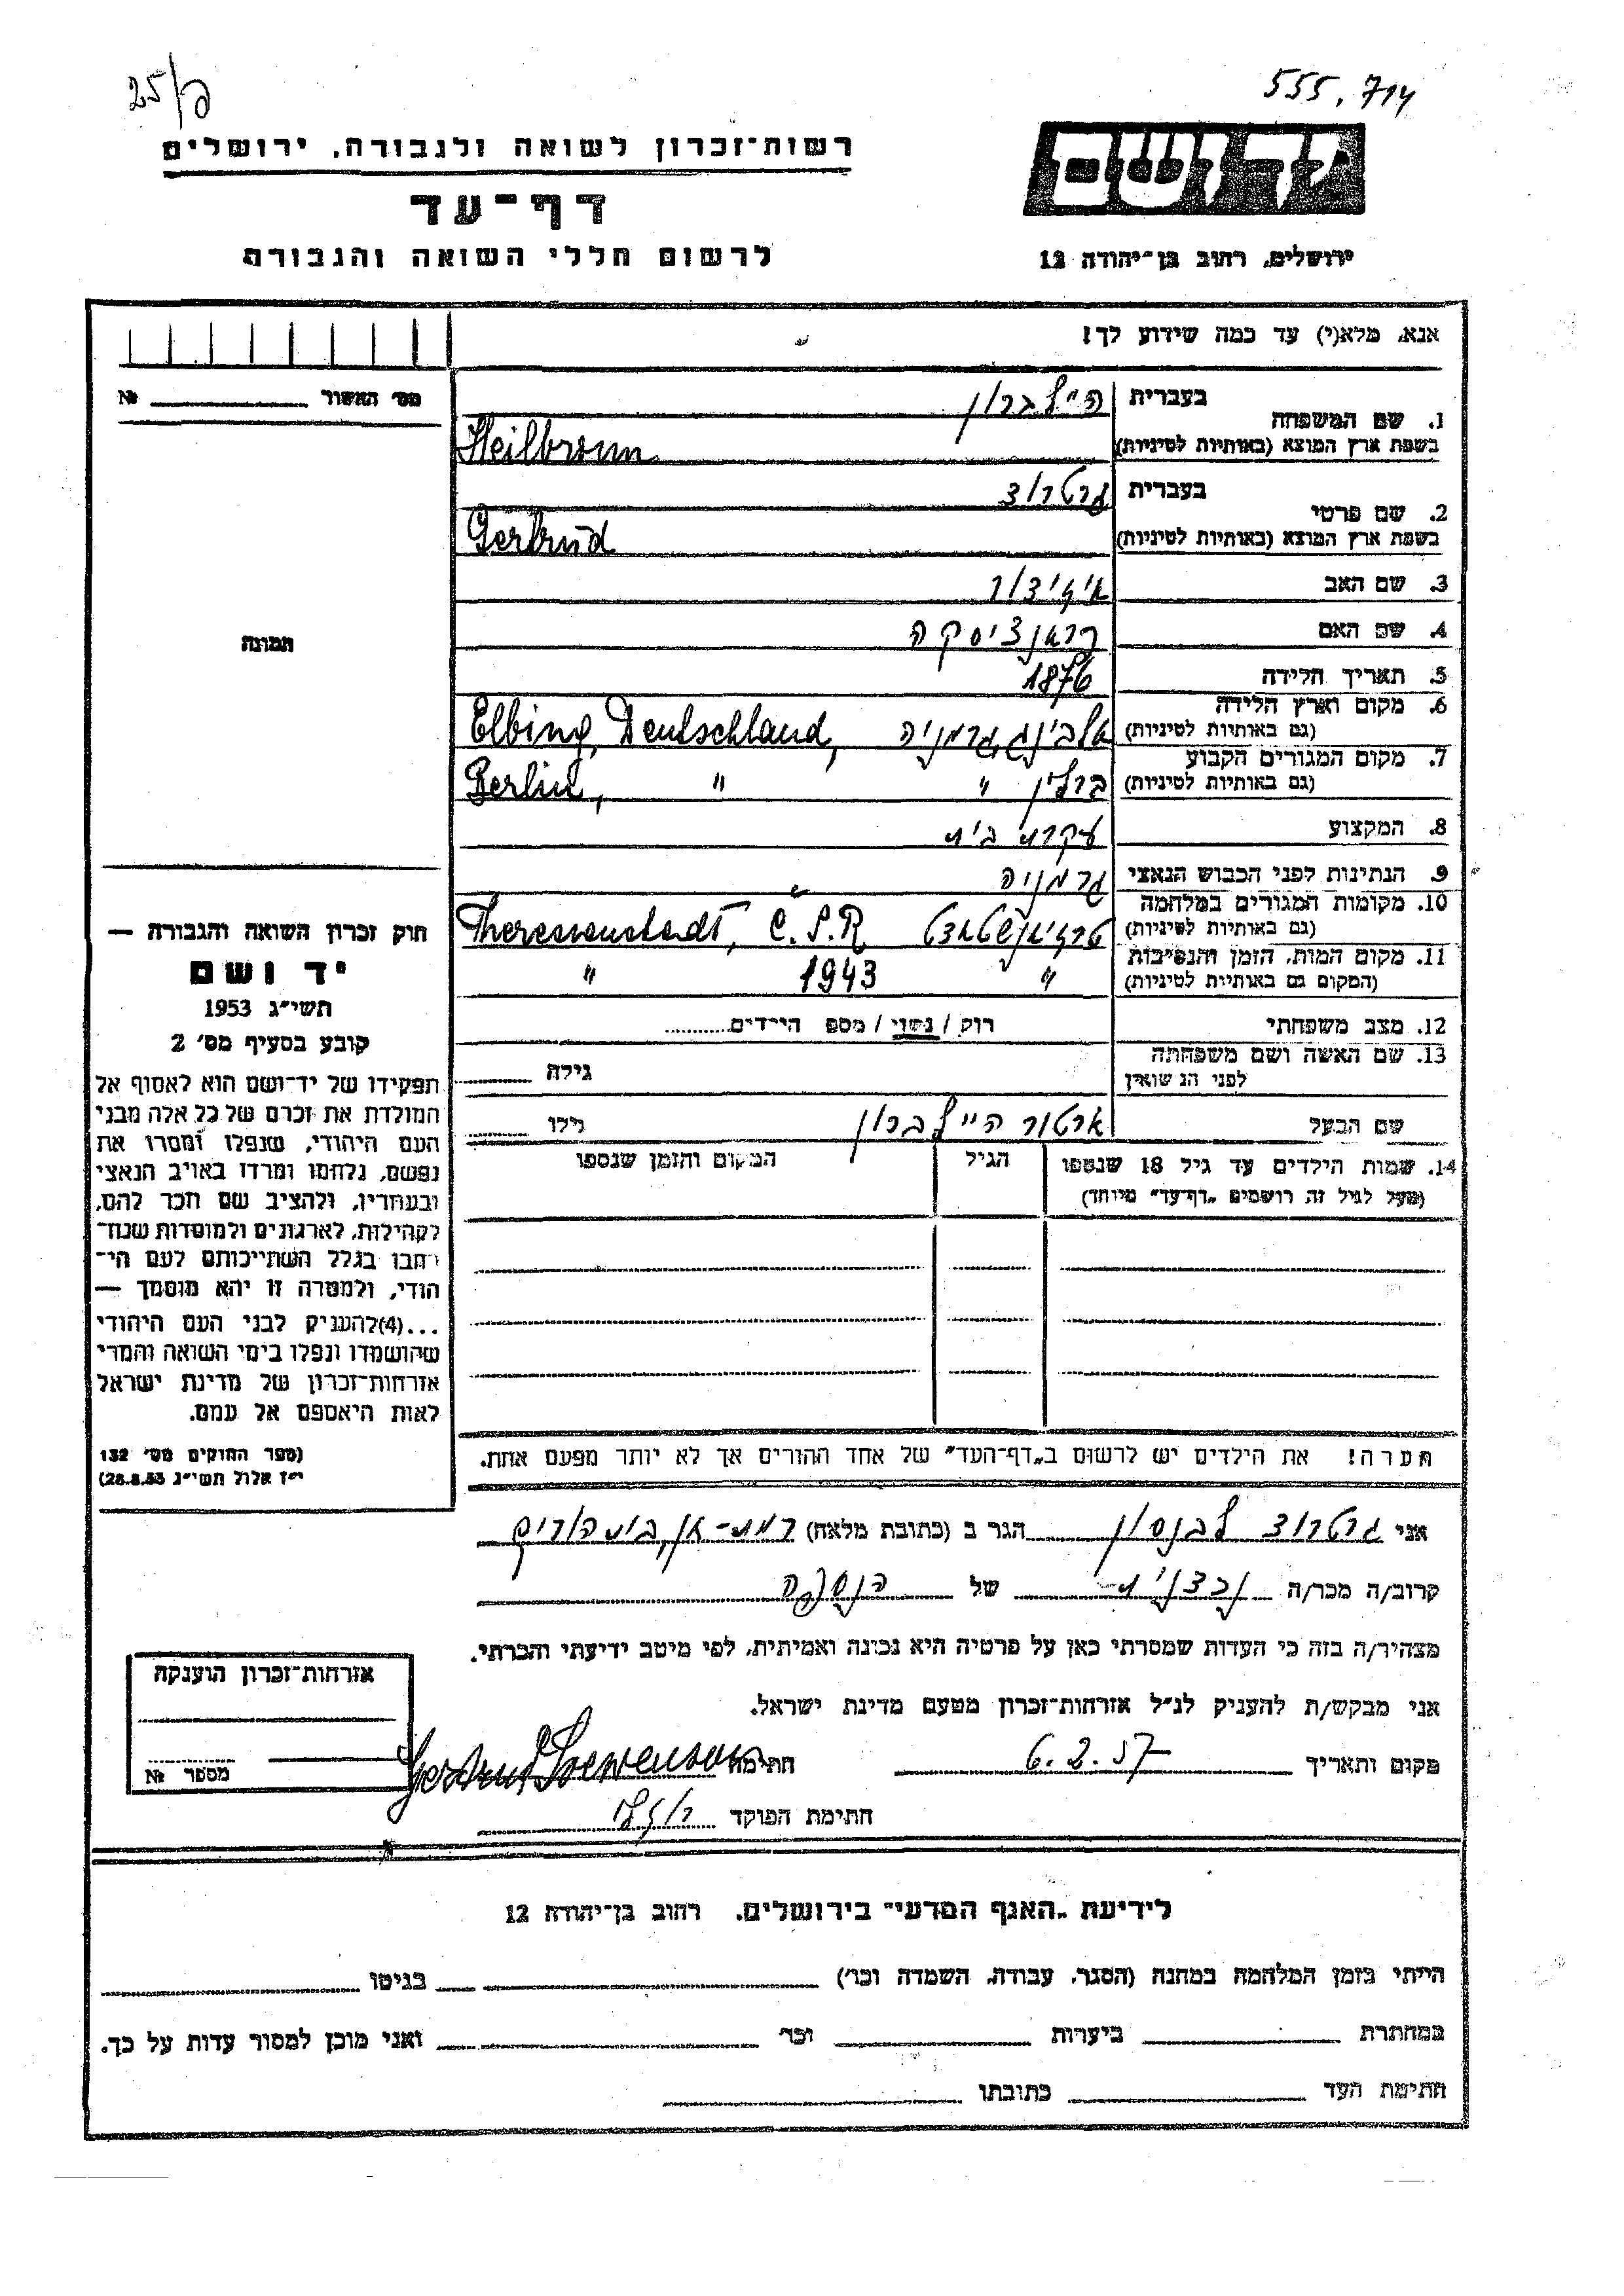 25/פ
555.714
רשות־זכרון לשואה ולגבורה, ירושלים
יד ושם
דף־עד
לרשום חללי השואה והגבורה
ירושלים, רחוב בן־יהודה 12
אנא, מלא(י) עד כמה שידוע לך!
מס׳ האשור №
תמונה
1. שם המשפחה
בעברית היילברון
בשפת ארץ המוצא (באותיות לטיניות) Heilbronn
2. שם פרטי
בעברית גרטרוד
בשפת ארץ המוצא (באותיות לטיניות) Gertrud
3. שם האב איזידור
4. שם האם פראנציסקה
5. תאריך הלידה 1876
6. מקום וארץ הלידה
(גם באותיות לטיניות) אלבינג גרמניה Elbing, Deutschland,
7. מקום המגורים הקבוע
(גם באותיות לטיניות) ברלין " Berlin, "
8. המקצוע עקרת בית
9. הנתינות לפני הכבוש הנאצי גרמניה
10. מקומות המגורים במלחמה
(גם באותיות לטיניות) טרזיאנשטאדט Theresienstadt, C.S.R
11. מקום המות, הזמן והנסיבות
(המקום גם באותיות לטיניות) " 1943 "
12. מצב משפחתי רוק / נשוי / מספ הילדים
13. שם האשה ושם משפחתה
לפני הנשואין גילה
שם הבעל ארטור היילברון גילו
14. שמות הילדים עד גיל 18 שנספו הגיל המקום והזמן שנספו
(מעל לגיל זה רושמים „דף־עד" מיוחד)
חוק זכרון השואה והגבורה —
יד ושם
תשי״ג 1953
קובע בסעיף מס׳ 2
תפקידו של יד־ושם הוא לאסוף אל
המולדת את זכרם של כל אלה מבני
העם היהודי, שנפלו ומסרו את
נפשם, נלחמו ומרדו באויב הנאצי
ובעוזריו, ולהציב שם וזכר להם,
לקהילות, לארגונים ולמוסדות שנח־
רבו בגלל השתייכותם לעם הי־
הודי, ולמטרה זו יהא מוסמך —
...(4)להעניק לבני העם היהודי
שהושמדו ונפלו בימי השואה והמרי
אזרחות־זכרון של מדינת ישראל
לאות היאספם אל עמם.
(ספר החוקים מס׳ 132
י״ז אלול תשי״ג 28.8.53)
הערה! את הילדים יש לרשום ב„דף־העד" של אחד ההורים אך לא יותר מפעם אחת.
אני גרטרוד לבנסון הגר ב (כתובת מלאה) רמת-גן, בית הורים
קרוב/ה מכר/ה של הנספה
מצהיר/ה בזה כי העדות שמסרתי כאן על פרטיה היא נכונה ואמיתית, לפי מיטב ידיעתי והכרתי.
אני מבקש/ת להעניק לנ״ל אזרחות־זכרון מטעם מדינת ישראל.
מקום ותאריך 6.2.57 חתימה Gertrud Loewenson
חתימת הפוקד
אזרחות־זכרון הוענקה
מספר №
לידיעת „האגף המדעי" בירושלים. רחוב בן־יהודה 12
הייתי בזמן המלחמה במחנה (הסגר, עבודה, השמדה וכו׳) בגיטו
במחתרת ביערות וכו׳ ואני מוכן למסור עדות על כך.
חתימת העד כתובתו